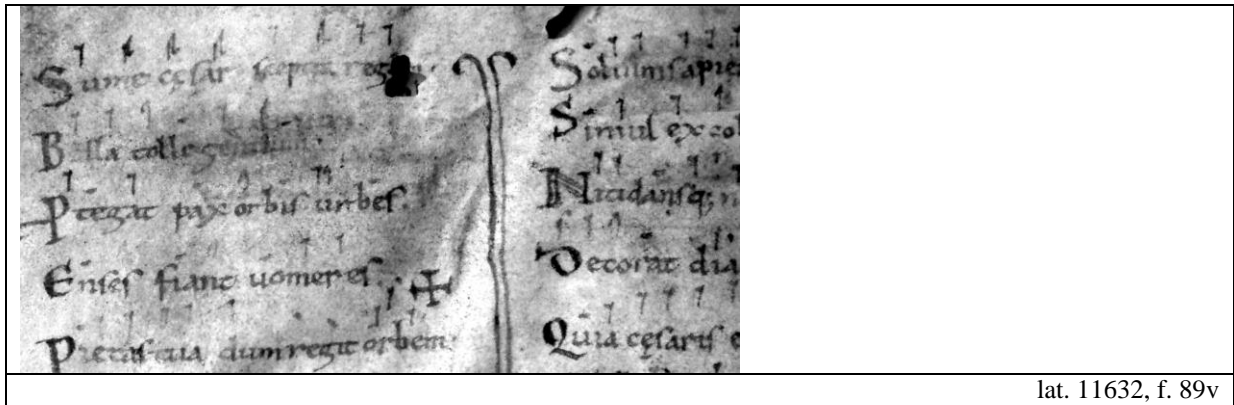 Sume cęsar sceptra reg
Bella tolle gentium
Ptegat pax orbis urbes.
Enses fiant uomeres.
Pietas tua dum regit orbem
Solium sapie
Simul ex co
Nitidansq; n
Decorat dia
Quia cęsaris e
lat. 11632, f. 89v